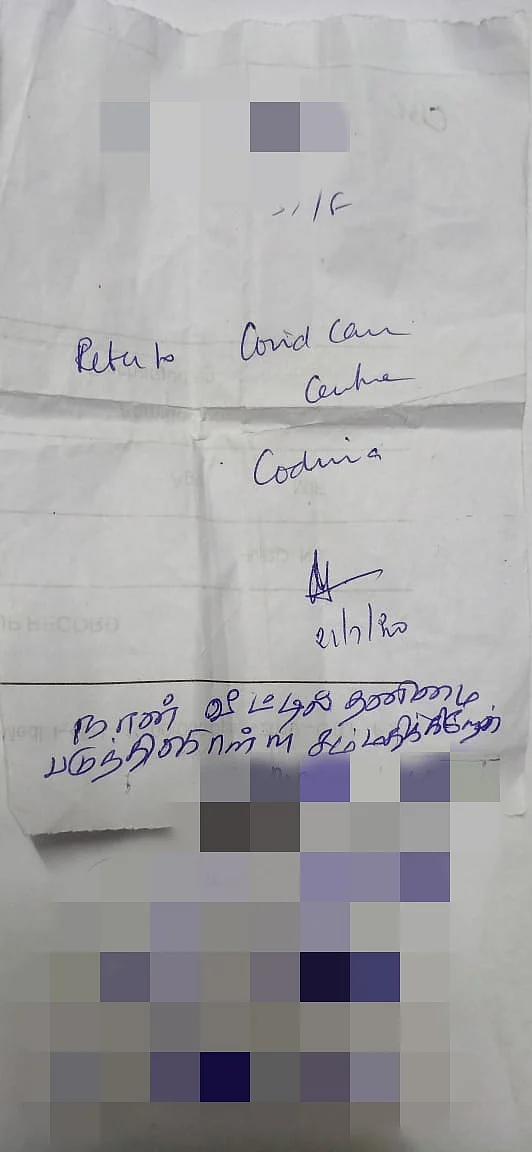 /F
Refer to Covid Care
Centre
Codissia
21/7/20
நான் வீட்டில் தனிமை
படுத்திகொள்ள சம்மதிக்கிறேன்